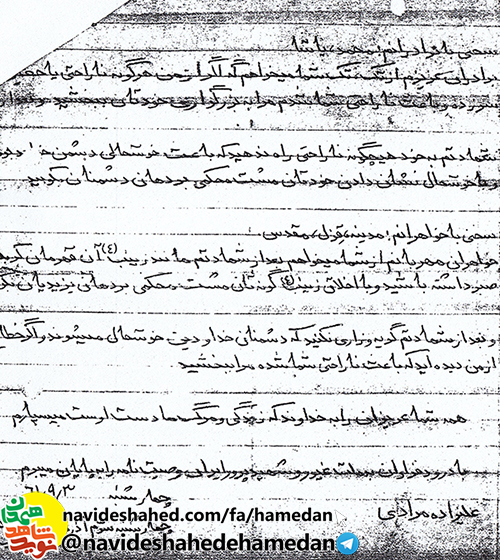 سخنی با برادرانم: محمد، پاشا
برادران عزیزم از تک تک شما میخواهم که اگر از من هرگونه ناراحتی یا
سرزده و باعث ناراحتی شما شدم مرا به بزرگواری خودتان ببخشید و
شهادتم به خود هیچگونه ناراحتی راه ندهید که باعث خوشحالی دشمن خدا
و با خوشحال نشان دادن خودتان مشت محکمی بر دهان دشمنان بکوبید
سخنی با خواهرانم: مدینه، قزل، مقدس
خواهران مهربانم از شما میخواهم بعد از شهادتم مانند زینب (ع) آن قهرمان کربلا
صبر داشته باشید و با اخلاق زینب (ع) گونه تان مشت محکمی بر دهان یزیدیان
و بعد از شهادتم گریه و زاری نکنید که دشمنان خدا و دین خوشحال میشوند و اگر خطا
از من دیده اید که باعث ناراحتی شما شده مرا ببخشید
همه شما عزیزان را به خداوند که زندگی و مرگ ما دست اوست میسپارم
با درود فراوان به ملت غیور و شهید پرور ایران وصیت نامه را به پایان میبرم
چهارشنبه ۶۱/۹/۳
علیزاده مرادی
نوید شاهد همدان
navideshahed.com/fa/hamedan
@navideshahedehamedan